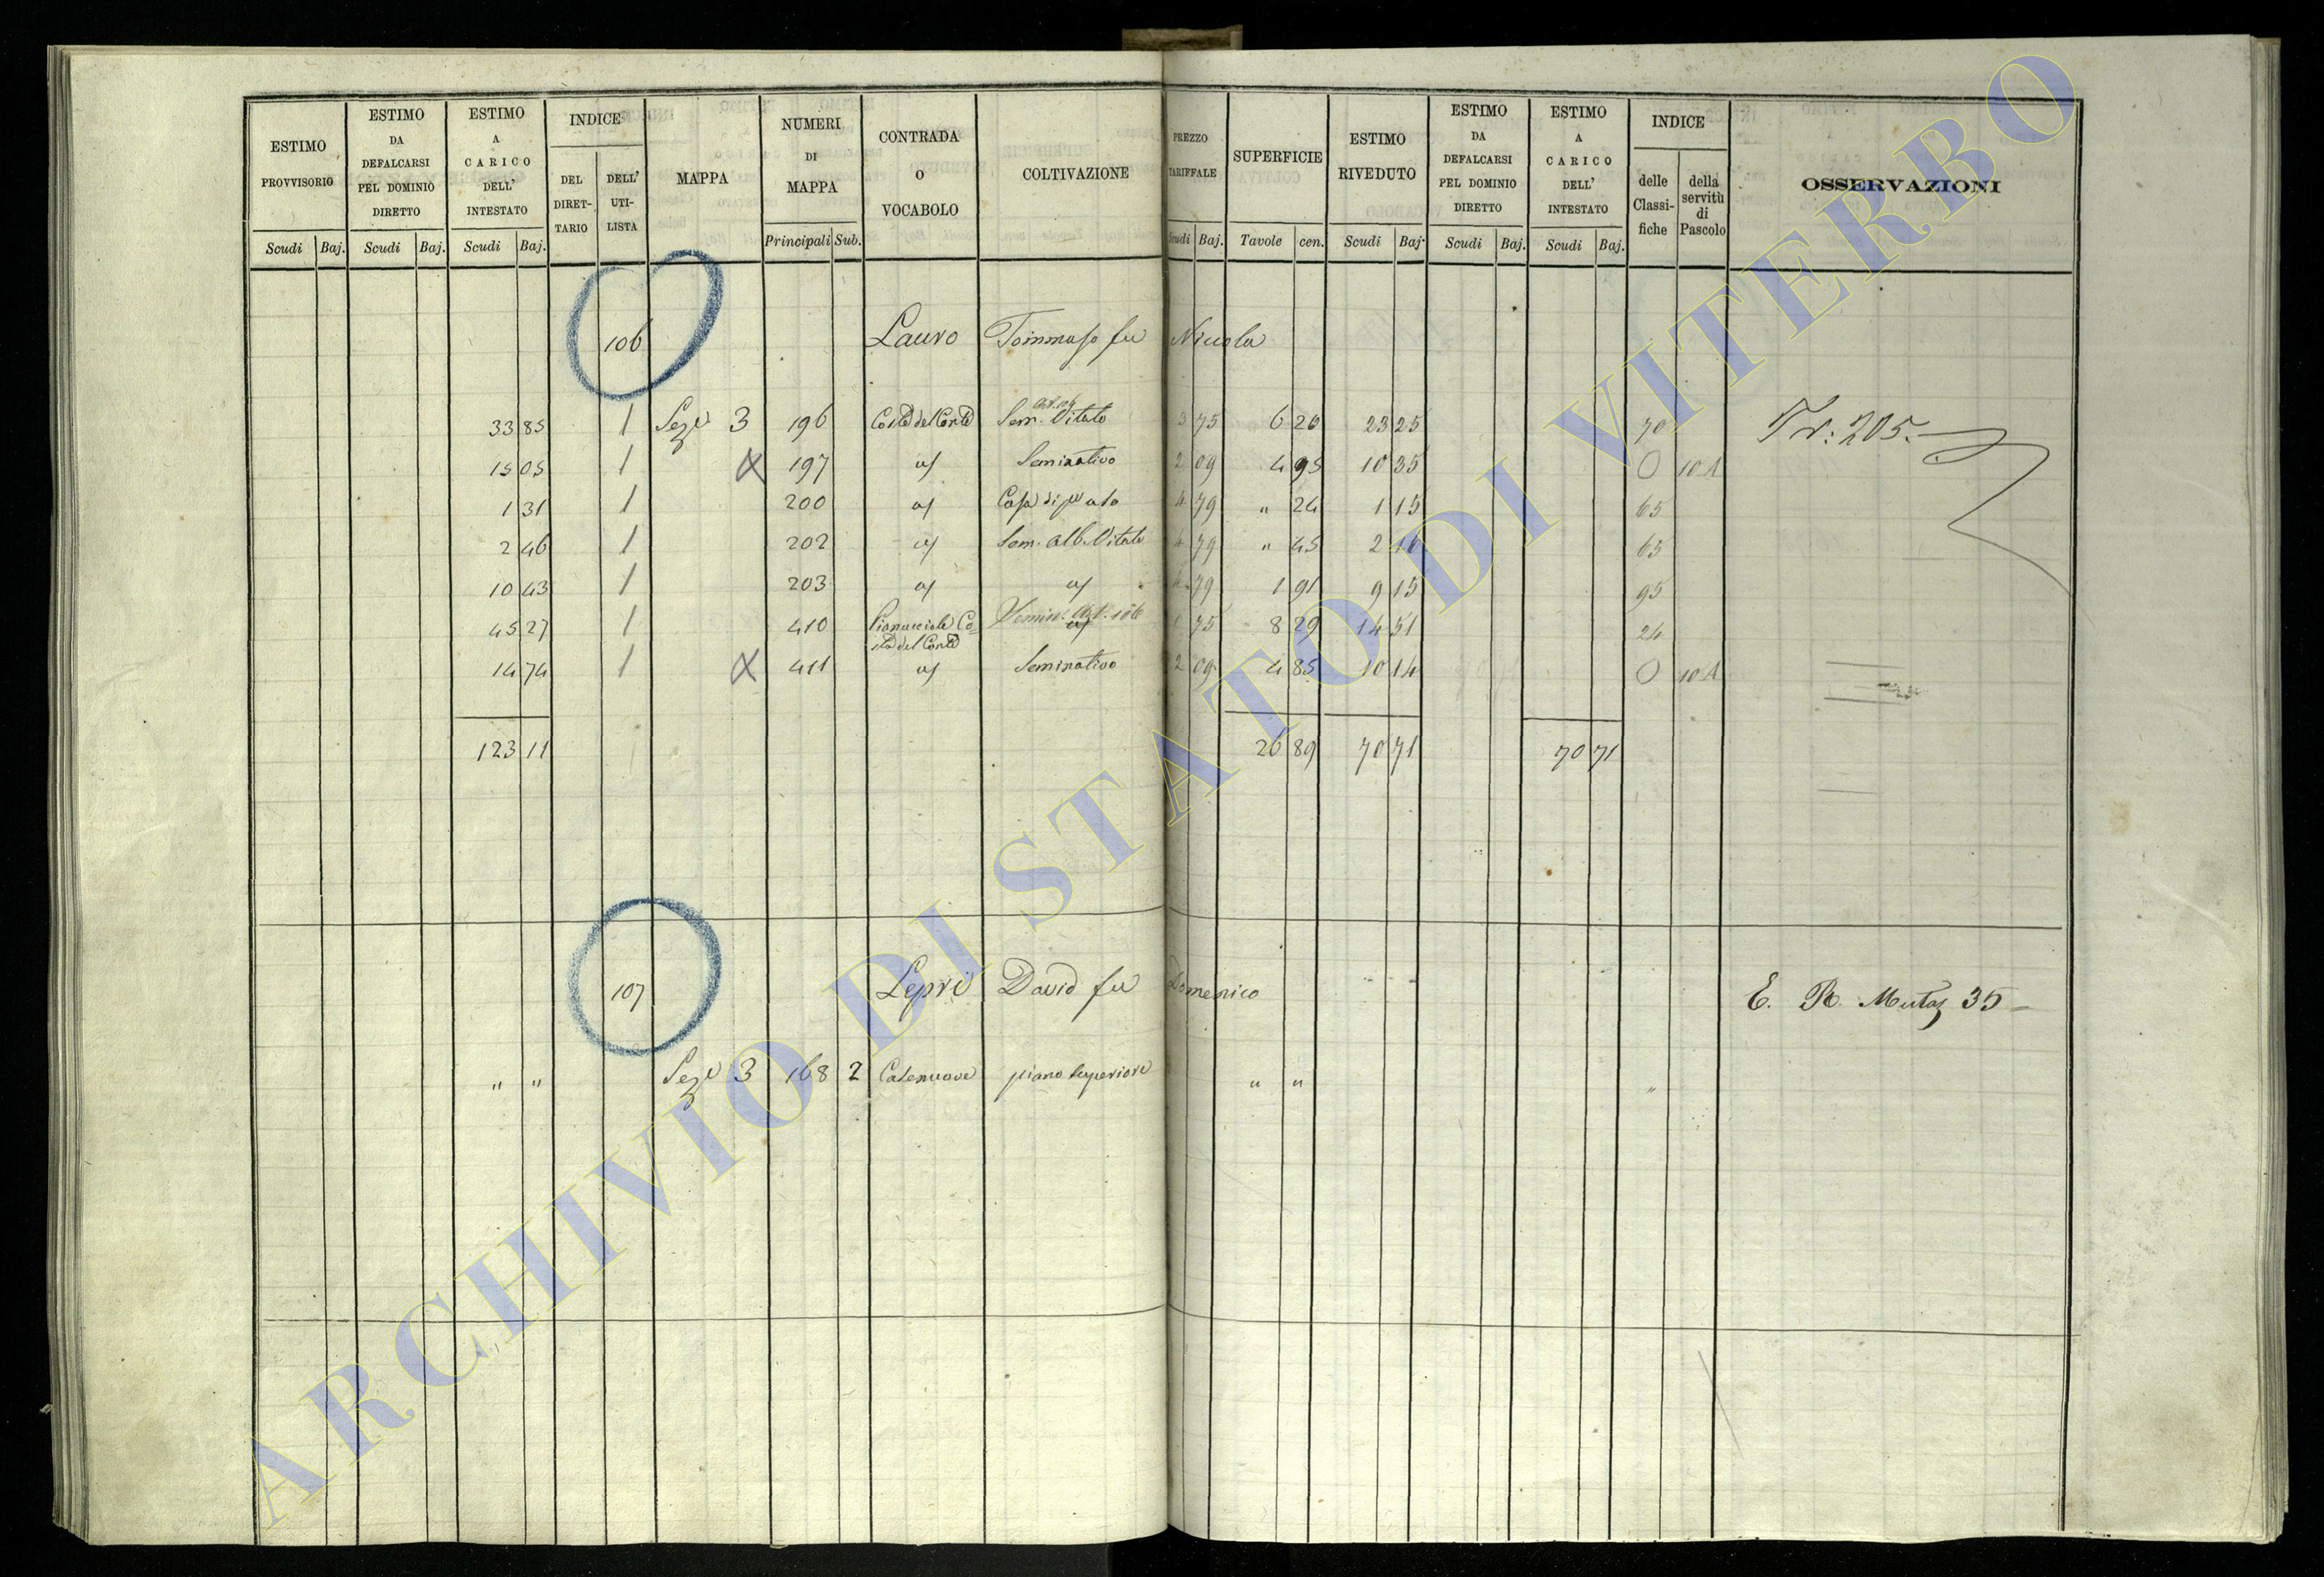 ESTIMO PROVVISORIO
Scudi Baj.
ESTIMO DA DEFALCARSI PEL DOMINIO DIRETTO
Scudi Baj.
ESTIMO A CARICO DELL' INTESTATO
Scudi Baj.
INDICE
DEL DIRET- TARIO
DELL' UTI- LISTA
MAPPA
NUMERI DI MAPPA
Principali Sub.
CONTRADA O VOCABOLO
COLTIVAZIONE
PREZZO TARIFFALE
Scudi Baj.
SUPERFICIE
Tavole cen.
ESTIMO RIVEDUTO
Scudi Baj.
ESTIMO DA DEFALCARSI PEL DOMINIO DIRETTO
Scudi Baj.
ESTIMO A CARICO DELL' INTESTATO
Scudi Baj.
INDICE
delle Classi- fiche
della servitù di Pascolo
OSSERVAZIONI
106 Lauro Tommaso fu Nicola
33 85 1 Sezе 3 196 Costa del Conte Sem. Vitato 3 75 6 20 23 25 70 Tr: 205.
15 05 1 X 197 Seminativo 2 09 4 95 10 35 0 10 A
1 31 1 200 Casa di 4 79 " 24 1 15 65
2 46 1 202 Sem. alb. Vitato 4 79 " 45 2 16 65
10 43 1 203 4 79 1 91 9 15 95
45 27 1 410 Co- Semin. 1 75 8 29 14 51 24
sta del Conte
14 74 1 X 411 Seminativo 2 09 4 85 10 14 0 10 A
123 11 26 89 70 71 70 71
107 Lepri David fu Domenico E. R. 35
" " Sezе 3 168 2 Casenuove piano superiore " " "
ARCHIVIO DI STATO DI VITERBO